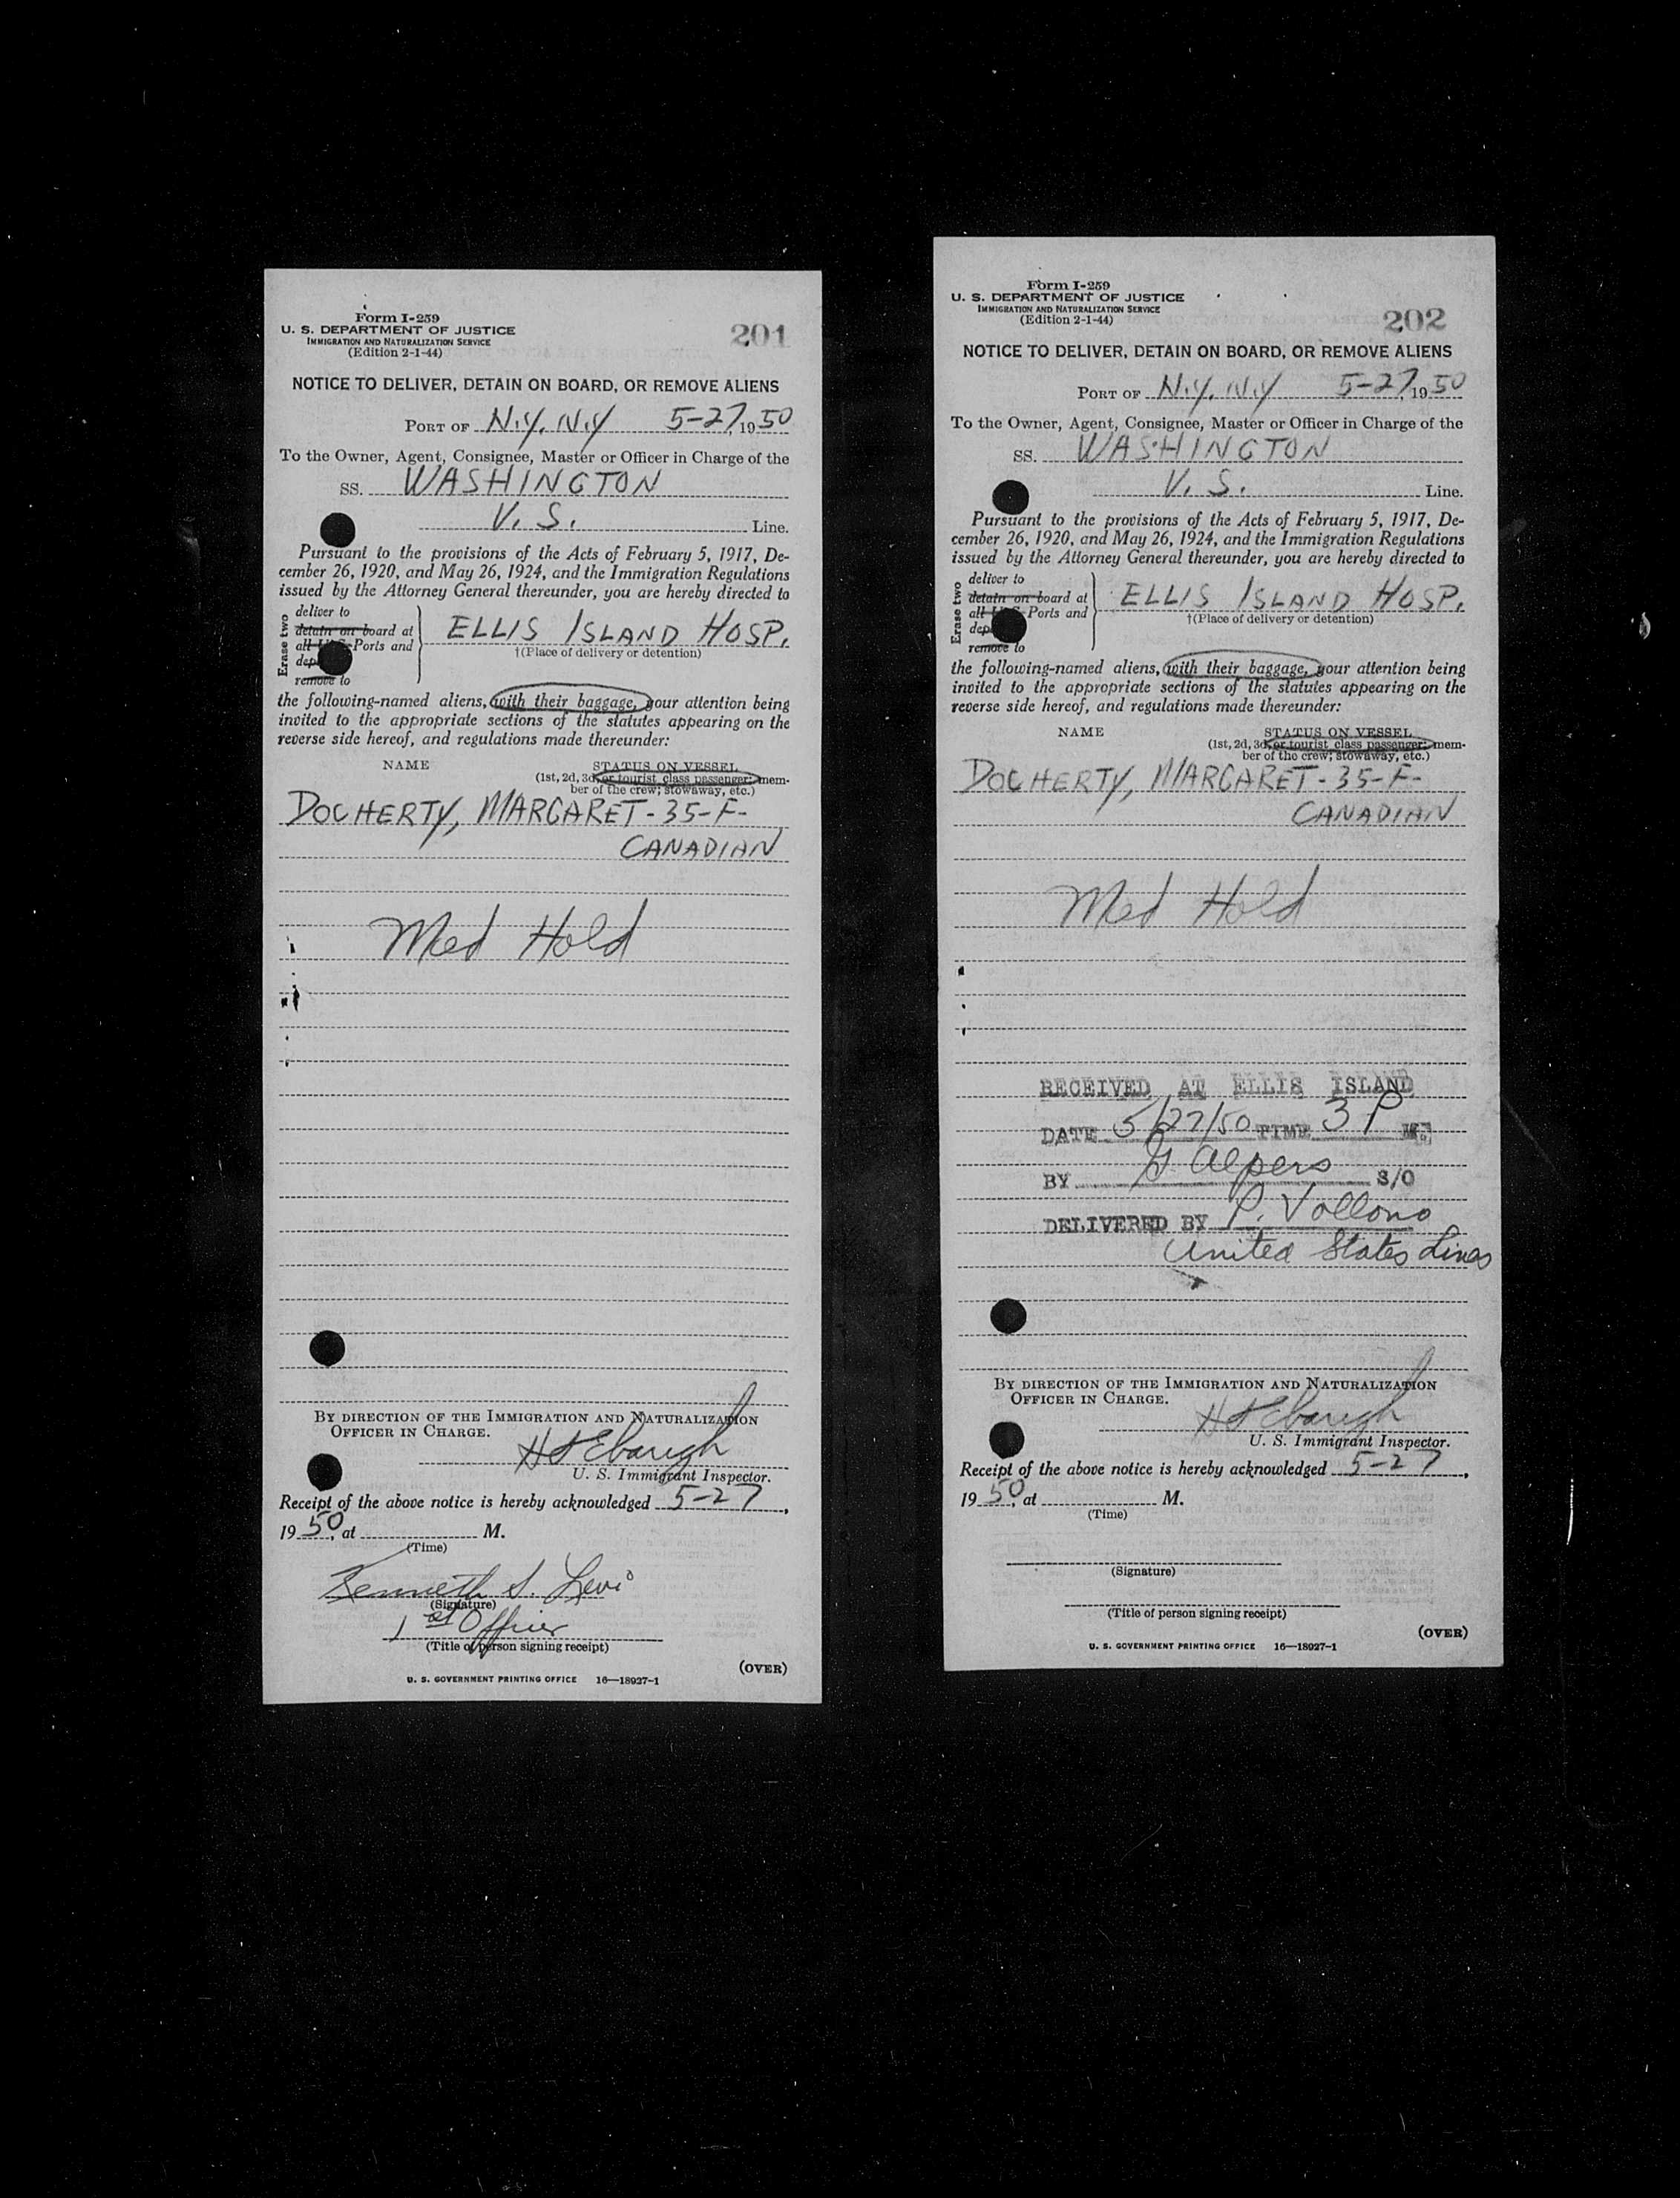 Form I-259
U. S. DEPARTMENT OF JUSTICE
IMMIGRATION AND NATURALIZATION SERVICE
(Edition 2-1-44)
201
NOTICE TO DELIVER, DETAIN ON BOARD, OR REMOVE ALIENS
PORT OF N.Y. N.Y 5-27, 1950
To the Owner, Agent, Consignee, Master or Officer in Charge of the
SS. WASHINGTON
V. S. Line.
Pursuant to the provisions of the Acts of February 5, 1917, De-
cember 26, 1920, and May 26, 1924, and the Immigration Regulations
issued by the Attorney General thereunder, you are hereby directed to
Erase two
deliver to
detain on board at
all Ports and
remove to
ELLIS ISLAND HOSP.
†(Place of delivery or detention)
the following-named aliens, with their baggage, your attention being
invited to the appropriate sections of the statutes appearing on the
reverse side hereof, and regulations made thereunder:
NAME
STATUS ON VESSEL
(1st, 2d, 3d, or tourist class passenger; mem-
ber of the crew; stowaway, etc.)
DOCHERTY, MARGARET - 35-F-
CANADIAN
Med Hold
BY DIRECTION OF THE IMMIGRATION AND NATURALIZATION
OFFICER IN CHARGE.
H Ebaugh
U. S. Immigrant Inspector.
Receipt of the above notice is hereby acknowledged 5-27,
1950, at M.
(Time)
Kenneth S. Levi
(Signature)
1st Officer
(Title of person signing receipt)
(OVER)
U. S. GOVERNMENT PRINTING OFFICE 16—18927-1
Form I-259
U. S. DEPARTMENT OF JUSTICE
IMMIGRATION AND NATURALIZATION SERVICE
(Edition 2-1-44)
202
NOTICE TO DELIVER, DETAIN ON BOARD, OR REMOVE ALIENS
PORT OF N.Y. N.Y 5-27, 1950
To the Owner, Agent, Consignee, Master or Officer in Charge of the
SS. WASHINGTON
V. S. Line.
Pursuant to the provisions of the Acts of February 5, 1917, De-
cember 26, 1920, and May 26, 1924, and the Immigration Regulations
issued by the Attorney General thereunder, you are hereby directed to
Erase two
deliver to
detain on board at
all Ports and
remove to
ELLIS ISLAND HOSP.
†(Place of delivery or detention)
the following-named aliens, with their baggage, your attention being
invited to the appropriate sections of the statutes appearing on the
reverse side hereof, and regulations made thereunder:
NAME
STATUS ON VESSEL
(1st, 2d, 3d, or tourist class passenger; mem-
ber of the crew; stowaway, etc.)
DOCHERTY, MARGARET - 35-F-
CANADIAN
Med Hold
RECEIVED AT ELLIS ISLAND
DATE 5/27/50 TIME 3 P M.
BY G Alpers S/O
DELIVERED BY P. Vollono
United States Lines
BY DIRECTION OF THE IMMIGRATION AND NATURALIZATION
OFFICER IN CHARGE.
H Ebaugh
U. S. Immigrant Inspector.
Receipt of the above notice is hereby acknowledged 5-27,
1950, at M.
(Time)
(Signature)
(Title of person signing receipt)
(OVER)
U. S. GOVERNMENT PRINTING OFFICE 16—18927-1